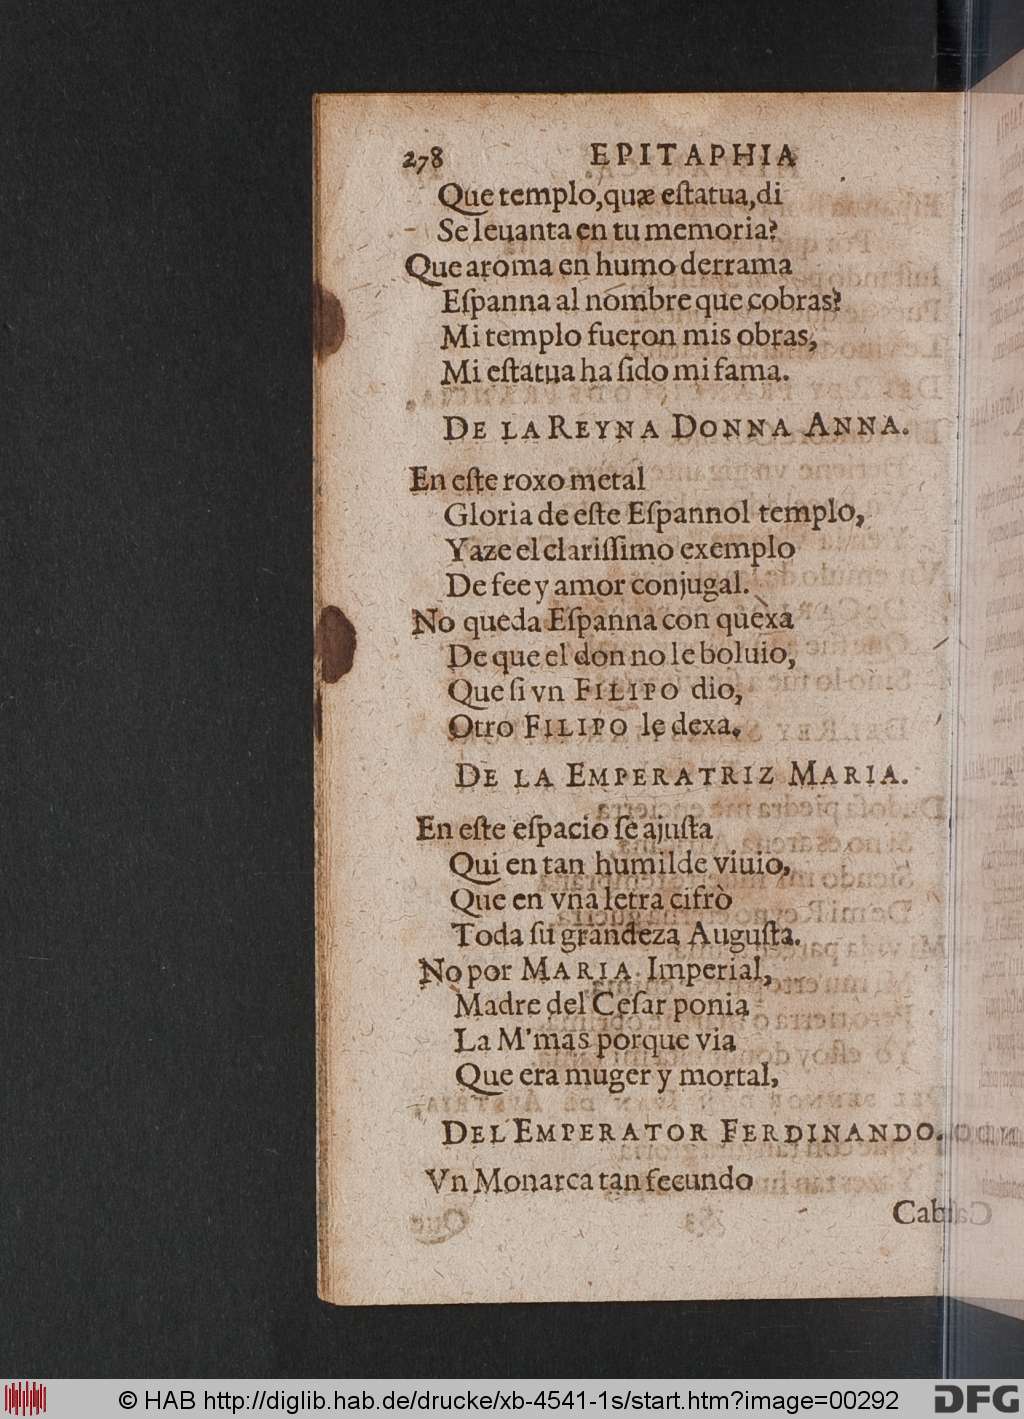 278 EPITAPHIA
Que templo, quæ eſtatua, di
Se leuanta en tu memoria?
Que aroma en humo derrama
Eſpanna al nombre que cobras?
Mi templo fueron mis obras,
Mi eſtatua ha ſido mi fama.
DE LA REYNA DONNA ANNA.
En eſte roxo metal
Gloria de eſte Eſpannol templo,
Yaze el clariſſimo exemplo
De fee y amor conjugal.
No queda Eſpanna con quexa
De que el don no le boluio,
Que ſi vn FILIPO dio,
Otro FILIPO le dexa.
DE LA EMPERATRIZ MARIA.
En eſte eſpacio ſe ajuſta
Qui en tan humilde viuio,
Que en vna letra cifrò
Toda ſu grandeza Auguſta.
No por MARIA Imperial,
Madre del Ceſar ponia
La M'mas porque via
Que era muger y mortal,
DEL EMPERATOR FERDINANDO.
Vn Monarca tan fecundo
© HAB http://diglib.hab.de/drucke/xb-4541-1s/start.htm?image=00292
DFG